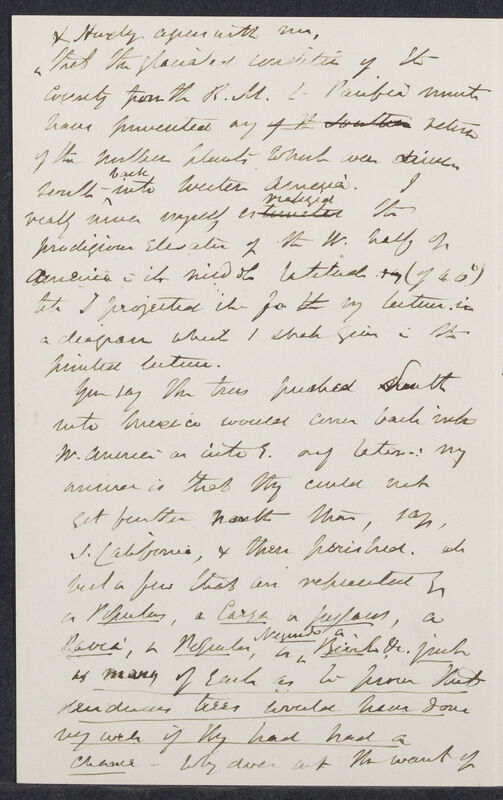 & Huxley agrees with me,
"that the glaciated condition of the
Country from the R.M. to Pacific must
have prevented any of the Southern return
of the northern plants which were driven
South back into Western America. I
really never myself realized the
prodigious Elevation of the W. half of
America in its middle latitude (of 40°)
till I projected it for my lecture in
a diagram which I shall give in the
printed lecture.
You say the trees pushed South
into Mexico would come back into
W. America as into E. only later: my
answer is that they could not
get further north than, say,
S. California, & there perished. all
but a few that are represented by
a Populus, a Carya or Juglans, a
Pavia, a Populus, a Negundo, a Birch &c. just
as many of each as to prove that
deciduous trees would have done
very well if they had had a
chance — Why does not the want of